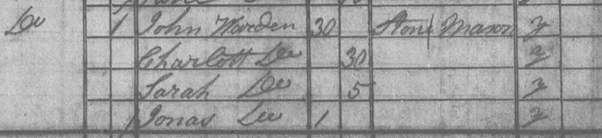 Do 1 John Warden 30 Stone Mason y
Charlott Do 30 y
Sarah Do 5 y
Jonas Do 1 y